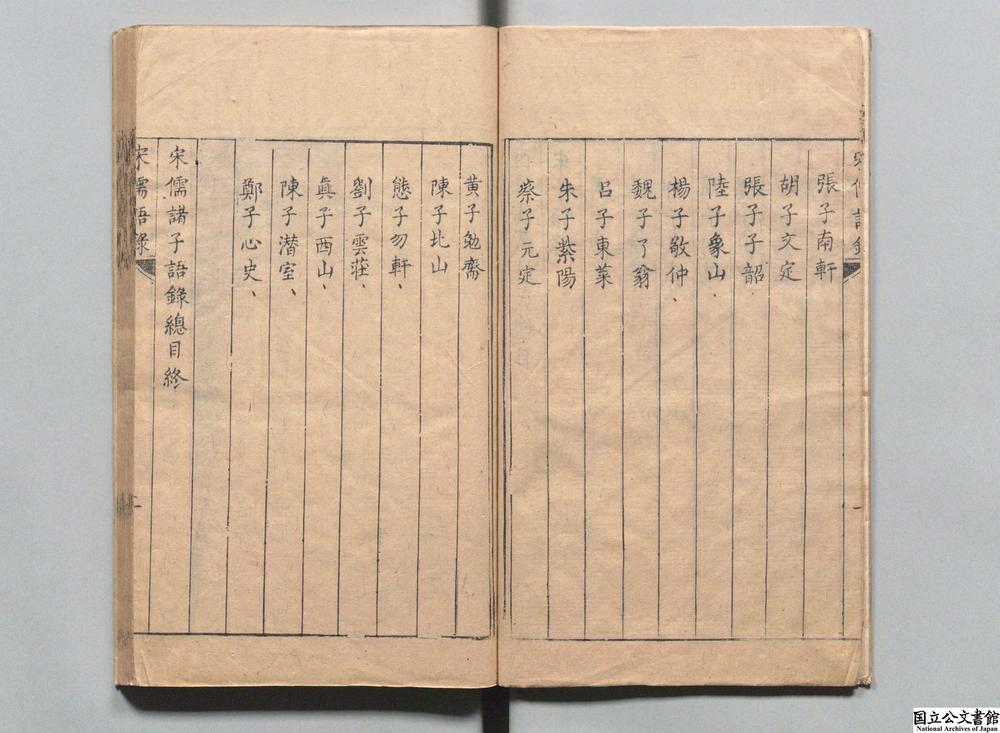 張子南軒
胡子文定
張子子韶
陸子象山
楊子敬仲
魏子了翁
呂子東萊
朱子紫陽
蔡子元定
黃子勉齋
陳子北山
熊子勿軒
劉子雲莊
眞子西山
陳子潜室
鄭子心史
宋儒諸子語錄總目終
宋儒語錄
国立公文書館
National Archives of Japan